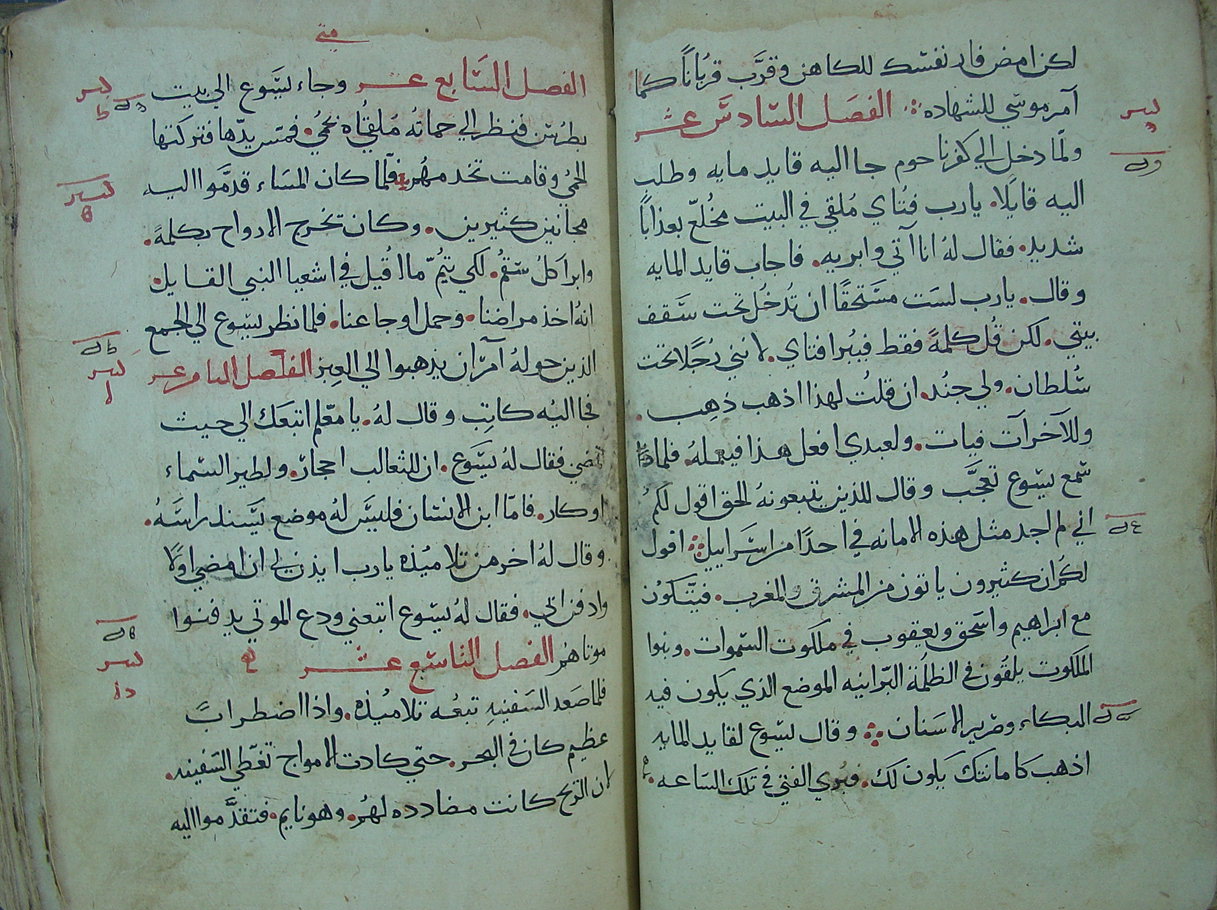 لكن امض فار نفسك للكاهن وقرَّب قربانًا كما
آمر موسي للشهاده ۞ الفصل السادس عشر
ولمّا دخل الي كفرناحوم جا اليه قايد مايه وطلب
اليه قايلا. يارب فتاي مُلقي في البيت مخُلّع بعذابًا
شديد. فقال لهُ انا آتي وابريه. فاجاب قايد المايه
وقال. يارب لست مستحقًا ان تدُخُل تحت سَقف
بيتي. لكن قُل كلمةً فقط فيبُرا فتاي. لانني رُجُلا تحت
سُلطان. ولي جنُد. ان قلتُ لهذا اذهب ذهب.
وللآخر آت فيات. ولعبدي افعل هذا فيعمله. فلما
سمع يسوع تعجَّب وقال للذين يتبعونهُ الحق اقول لكمُ
اني لم اجد مثل هذه الامانه في احدًا من اسراييل ۞ اقول
لكم ان كثيرون ياتون من المشرق والمغرب. فيتكون
مع ابراهيم واسحق ويعقوب في ملكوت السموات. وبنوا
الملكوت يلقون في الظلمة البرانيه الموضع الذي يكون فيه
البكاء وصرير الاسنان ۞ وقال يسوع لقايد المايه
اذهب كامانتك يكون لك. فبري الفتي في تلك الساعه.
متي
الفصل السابع عشر وجاء يسوع الي بيت
بطرس فنظر الي حماته مُلقاُه تحمي. فمس يدّها فتركتها
الحمي وقامت تخدمهُم فلمّا كان المسَاء قدموا اليه
مجانين كثيرين. وكان تخرج الارواح بكلمة.
وابرا كلُ سقمُ. لكي يتُمّ ما قُيل في اشعيا النبي القايل.
انهُ اخذ مراضنا. وحمل اوجاعنا. فلما نظر يسوع الي الجمع
الذين حوله آمر ان يذهبوا الي العبر الفصل الثامن عشر
فجا اليُه كاتب وقال لهُ. يا معّلم اتبعك الي حيث
تمضي فقال لهُ يسوع. ان للثعالب احجار. ولطير السماء
اوكار. فامّا ابن الانسان فليس لهُ موضع يسند راسَهُ.
وقال لهُ اخر من تلاميُذه يارب ايذن لي ان امضي اولًا
وادفن ابي. فقال لهُ يسوع اتبعني ودع الموتي يدفنوا
موتاهم الفصل التاسع عشر
فلما صعد السَفنيه تبعُه تلاميُذه. واذا اضطراب
عظيم كان في البحر. حتي كادت الامواج تغطي السفينه.
ان الريح كانت مضادده لهمُ. وهو نايم. فتقدَّموا اليه